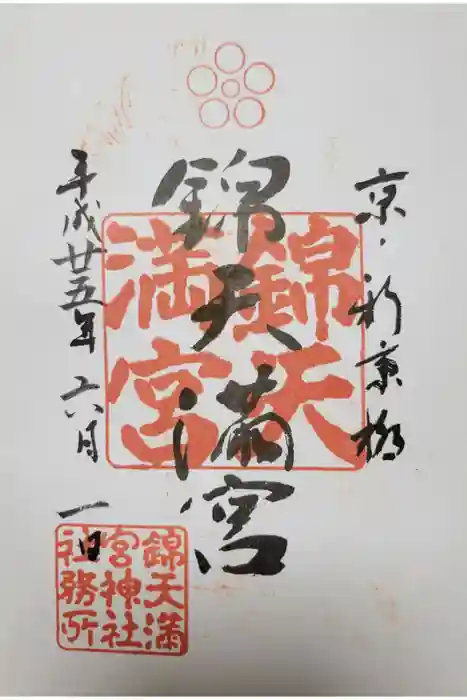 京・新京極
錦天満宮
錦天
満宮
平成廿五年 六月 一日
錦天満
宮神社
社務所